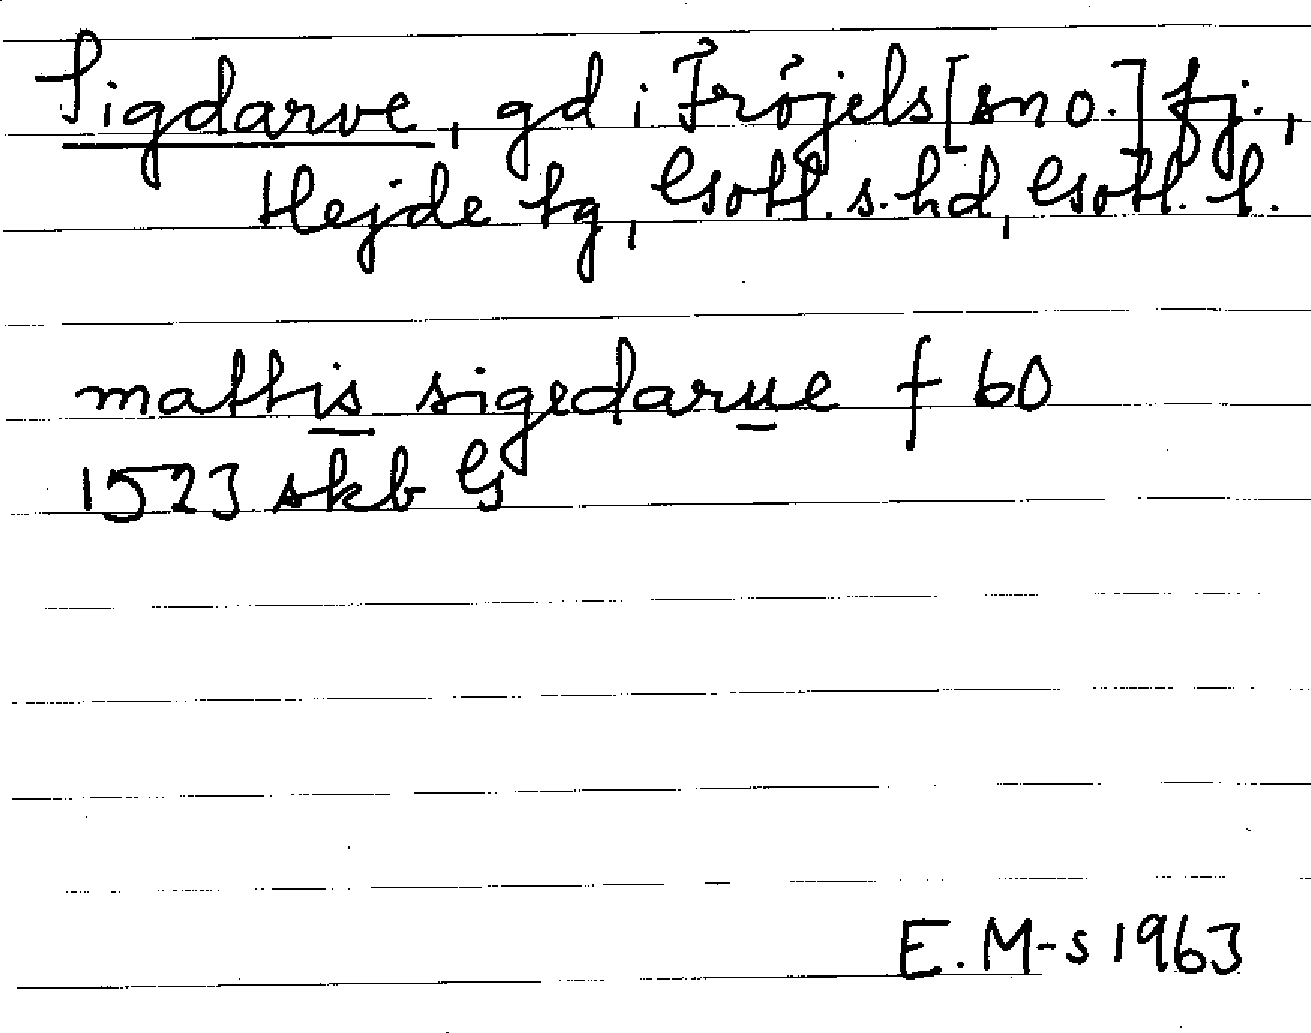 Sigdarve, gd i Fröjels [sn o.] tj.,
Hejde tg, Gotl. s. hd, Gotl. l.
mattis sigedarue f 60
1523 skb G
E. M-s 1963